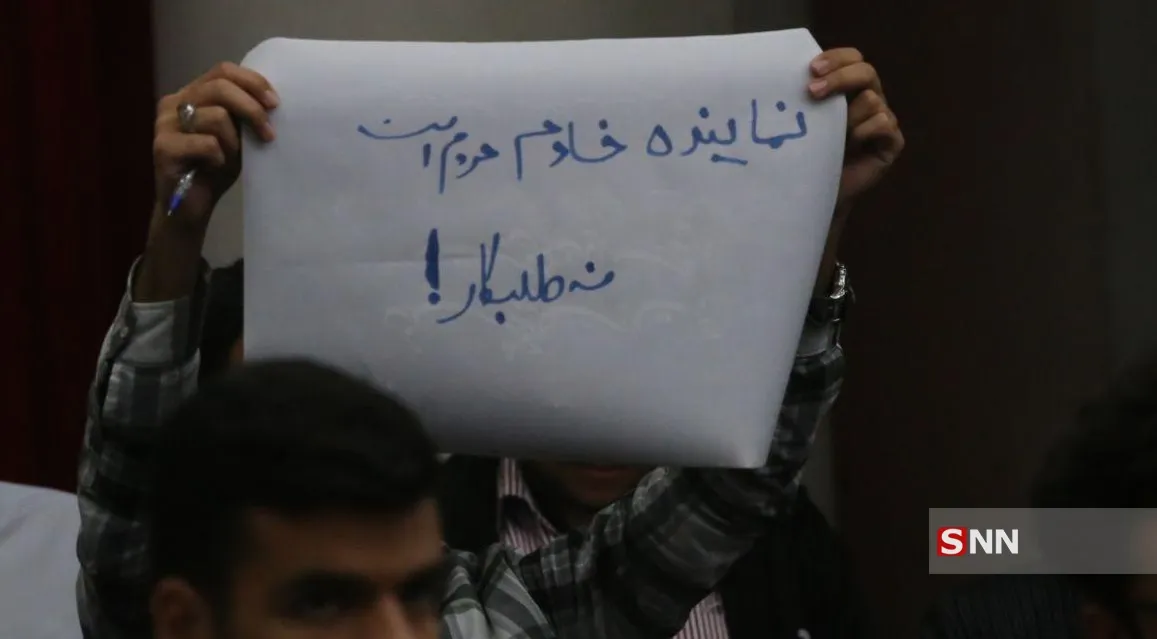 نماینده خادم مردم است
نه طلبکار!
SNN